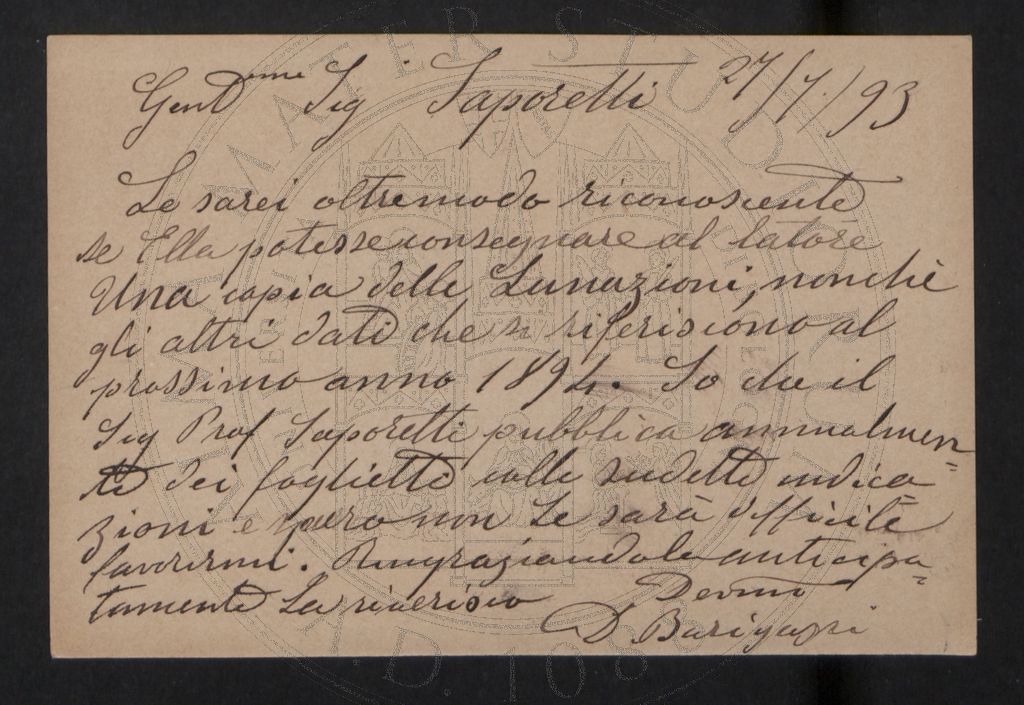 Gent.me Sig Saporetti 27/7/93
Le sarei oltremodo riconoscente
se Ella potesse consegnare al latore
Una copia delle Lunazioni, nonchè
gli altri dati che si riferiscono al
prossimo anno 1894. So che il
Sig Prof Saporetti pubblica annualmen=
te dei foglietti colle sudette indica
zioni e spero non Le sarà difficile
favorirmi. Ringraziandola anticipa=
tamente La riverisco Devmo
D Barigazzi
ALMA MATER STUDIORUM
A.D. 1088